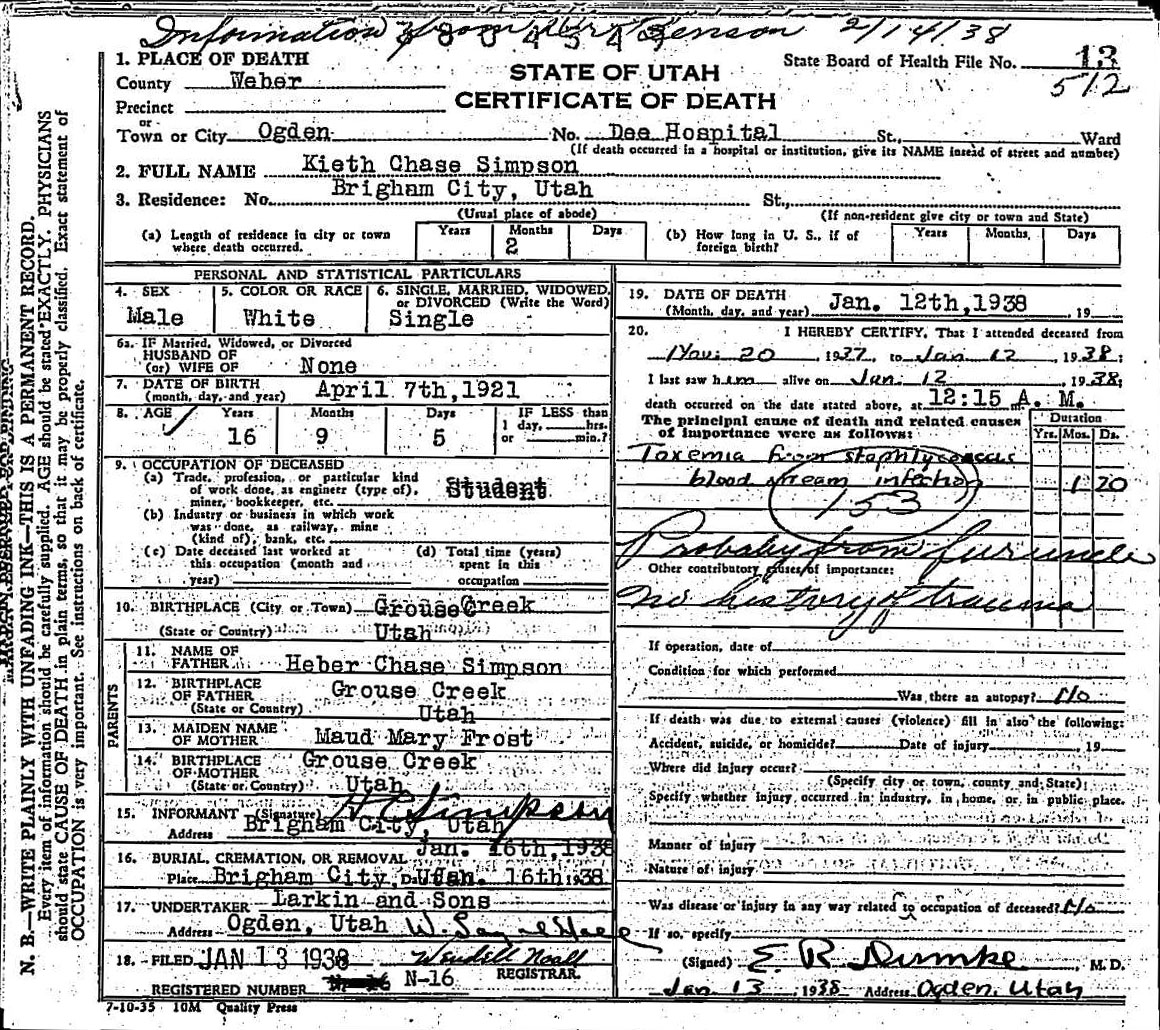 Information from Mr. Benson 2/14/38
1. PLACE OF DEATH
County Weber
STATE OF UTAH
CERTIFICATE OF DEATH
State Board of Health File No. 13
512
Precinct
or
Town or City Ogden No. Dee Hospital St., Ward
(If death occurred in a hospital or institution, give its NAME insead of street and number)
2. FULL NAME Kieth Chase Simpson
3. Residence: No. Brigham City, Utah St.,
(Usual place of abode) (If non-resident give city or town and State)
(a) Length of residence in city or town where death occurred. Years Months 2 Days
(b) How long in U. S., if of foreign birth? Years Months Days
PERSONAL AND STATISTICAL PARTICULARS
4. SEX Male
5. COLOR OR RACE White
6. SINGLE, MARRIED, WIDOWED, or DIVORCED (Write the Word) Single
6a. IF Married, Widowed, or Divorced
HUSBAND OF
(or) WIFE OF None
7. DATE OF BIRTH
(month, day, and year) April 7th,1921
8. AGE Years 16 Months 9 Days 5
IF LESS than
1 day, hrs.
or min.?
9. OCCUPATION OF DECEASED
(a) Trade, profession, or particular kind
of work done, as engineer (type of), Student
miner, bookkeeper, etc.
(b) Industry or business in which work
was done, as railway, mine
(kind of), bank, etc.
(c) Date deceased last worked at
this occupation (month and
year)
(d) Total time (years)
spent in this
occupation
10. BIRTHPLACE (City or Town) Grouse Creek
(State or Country) Utah
PARENTS
11. NAME OF
FATHER Heber Chase Simpson
12. BIRTHPLACE
OF FATHER Grouse Creek
(State or Country) Utah
13. MAIDEN NAME
OF MOTHER Maud Mary Frost
14. BIRTHPLACE Grouse Creek
OF MOTHER
(State or Country) Utah
15. INFORMANT (Signature) H C Simpson
Address Brigham City, Utah
16. BURIAL, CREMATION, OR REMOVAL Jan. 16th,1938
Place Brigham City, Utah. 16th 1938
17. UNDERTAKER Larkin and Sons
Address Ogden, Utah
18. FILED JAN 13 1938 Wendell Noall
REGISTRAR.
REGISTERED NUMBER N-16
7-10-35 10M Quality Press
19. DATE OF DEATH
(Month, day, and year) Jan. 12th,1938 19
20. I HEREBY CERTIFY, That I attended deceased from
Nov. 20 1937 to Jan 12 1938;
I last saw him alive on Jan. 12 1938;
death occurred on the date stated above, at 12:15 A. M.
The principal cause of death and related causes
of importance were as follows:
Duration
Yrs. Mos. Ds.
Toxemia from staphlycoccus
blood stream infection 1 20
153
Probaly from furuncle
Other contributory causes of importance:
no history of trauma
If operation, date of
Condition for which performed
Was there an autopsy? No
If death was due to external causes (violence) fill in also the following:
Accident, suicide, or homicide? Date of injury 19
Where did injury occur?
(Specify city or town, county and State)
Specify whether injury occurred in industry, in home, or in public place.
Manner of injury
Nature of injury
Was disease or injury in any way related to occupation of deceased? No
If so, specify
(Signed) E R Dumke, M. D.
Jan 13 1938 Address Ogden, Utah
N. B.—WRITE PLAINLY WITH UNFADING INK—THIS IS A PERMANENT RECORD.
Every item of information should be carefully supplied. AGE should be stated EXACTLY. PHYSICIANS
should state CAUSE OF DEATH in plain terms, so that it may be properly classified. Exact statement of
OCCUPATION is very important. See instructions on back of certificate.